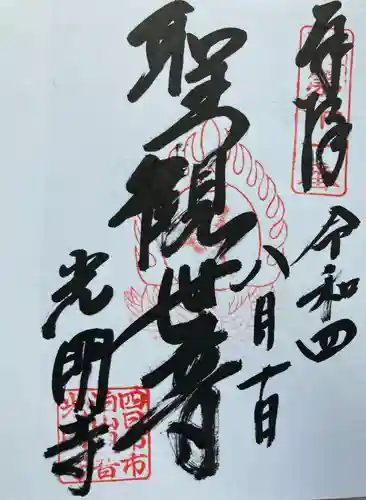 奉拝
令和四
八月十日
聖観世音
光明寺
四日市市